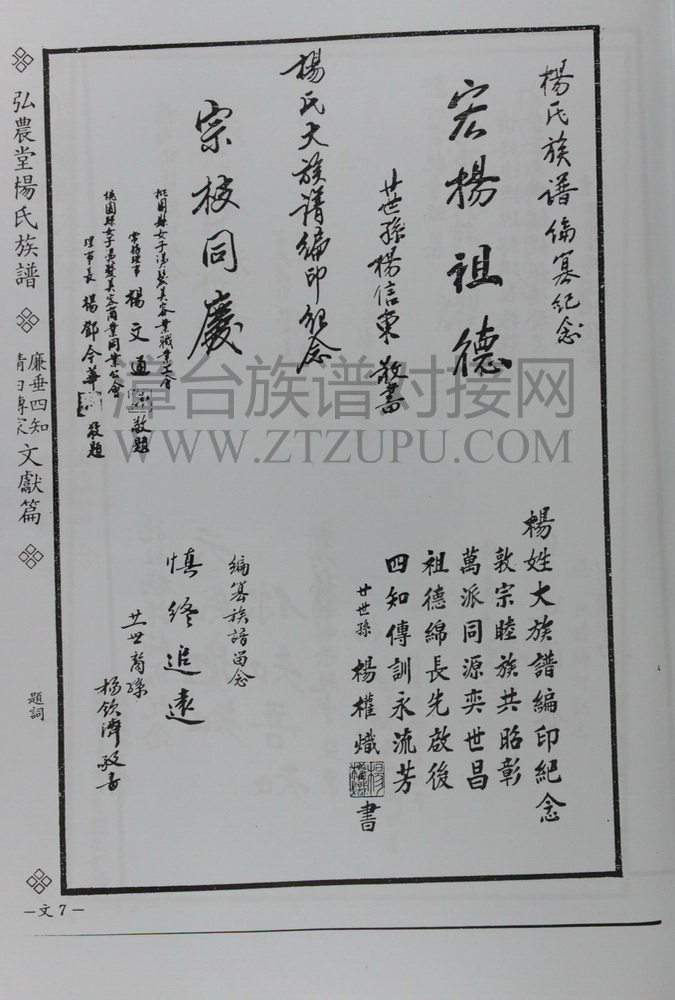 楊氏族譜編纂紀念
宏楊祖德
廿世孫楊信東敬書
楊氏大族譜編印紀念
宗枝同慶
桃園縣女子燙髮美容業職業工會
常務理事 楊文通 敬題
桃園縣女子燙髮美容商業同業公會
理事長 楊鄧今華 敬題
楊姓大族譜編印紀念
敦宗睦族共昭彰
萬派同源奕世昌
祖德綿長先啟後
四知傳訓永流芳
廿世孫 楊權熾 書
編纂族譜留念
慎終追遠
廿世裔孫
楊欽濤敬書
弘農堂楊氏族譜
廉垂四知
清白傳家
文獻篇
題詞
—文7—
漳台族谱对接网
WWW.ZTZUPU.COM